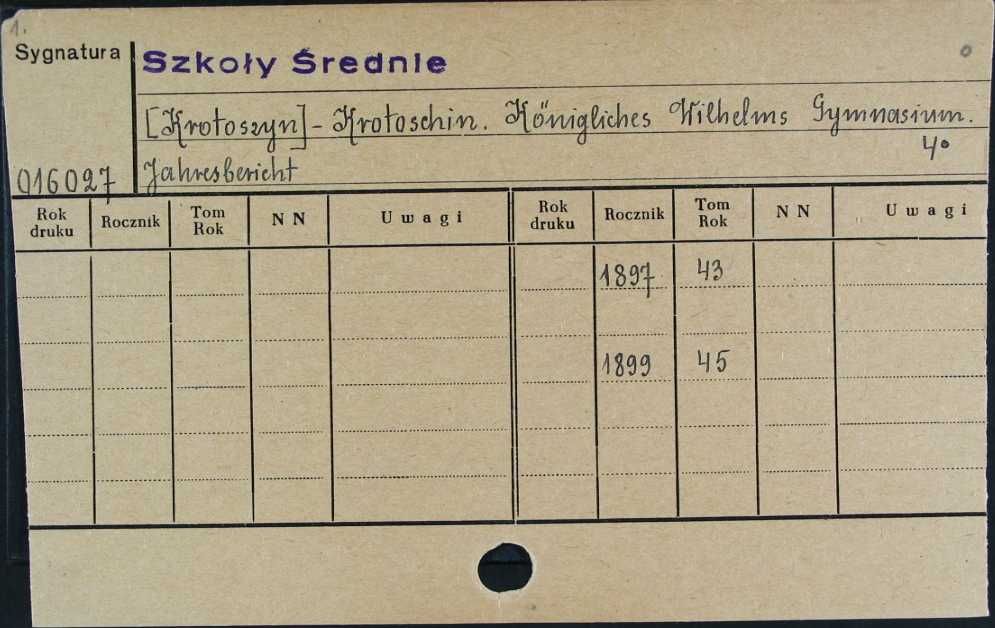 1.
Sygnatura
Szkoły Średnie
[Krotoszyn] - Krotoschin. Königliches Wilhelms Gymnasium.
4°
016027 Jahresbericht
Rok druku Rocznik Tom Rok N N Uwagi Rok druku Rocznik Tom Rok N N Uwagi
1897 43
1899 45